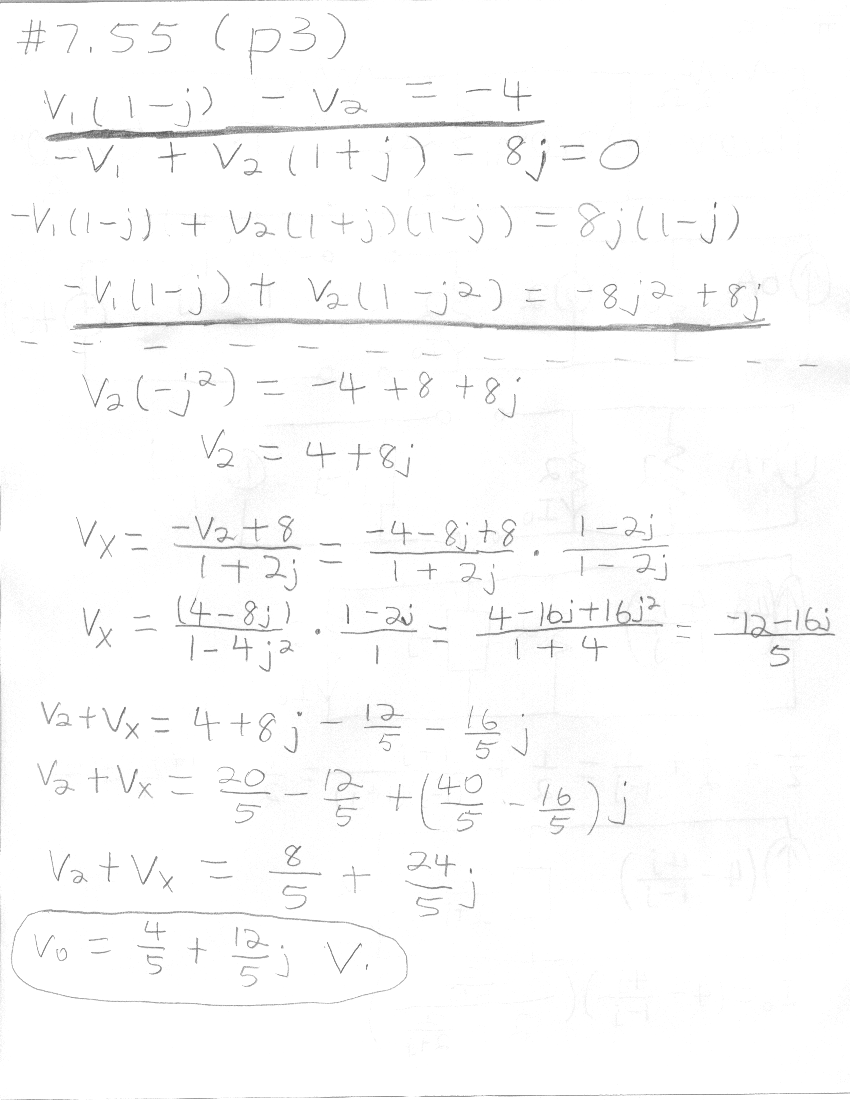 #7.55 (p3)
V₁(1-j) - V₂ = -4
-V₁ + V₂(1+j) - 8j = 0
-V₁(1-j) + V₂(1+j)(1-j) = 8j(1-j)
-V₁(1-j) + V₂(1-j²) = -8j² + 8j
V₂(-j²) = -4 + 8 + 8j
V₂ = 4 + 8j
Vx = (-V₂+8)/(1+2j) = (-4-8j+8)/(1+2j) · (1-2j)/(1-2j)
Vx = (4-8j)/(1-4j²) · (1-2j)/1 = (4-16j+16j²)/(1+4) = (-12-16j)/5
V₂+Vx = 4 + 8j - 12/5 - 16/5 j
V₂+Vx = 20/5 - 12/5 + (40/5 - 16/5)j
V₂+Vx = 8/5 + 24/5 j
V₀ = 4/5 + 12/5 j V.